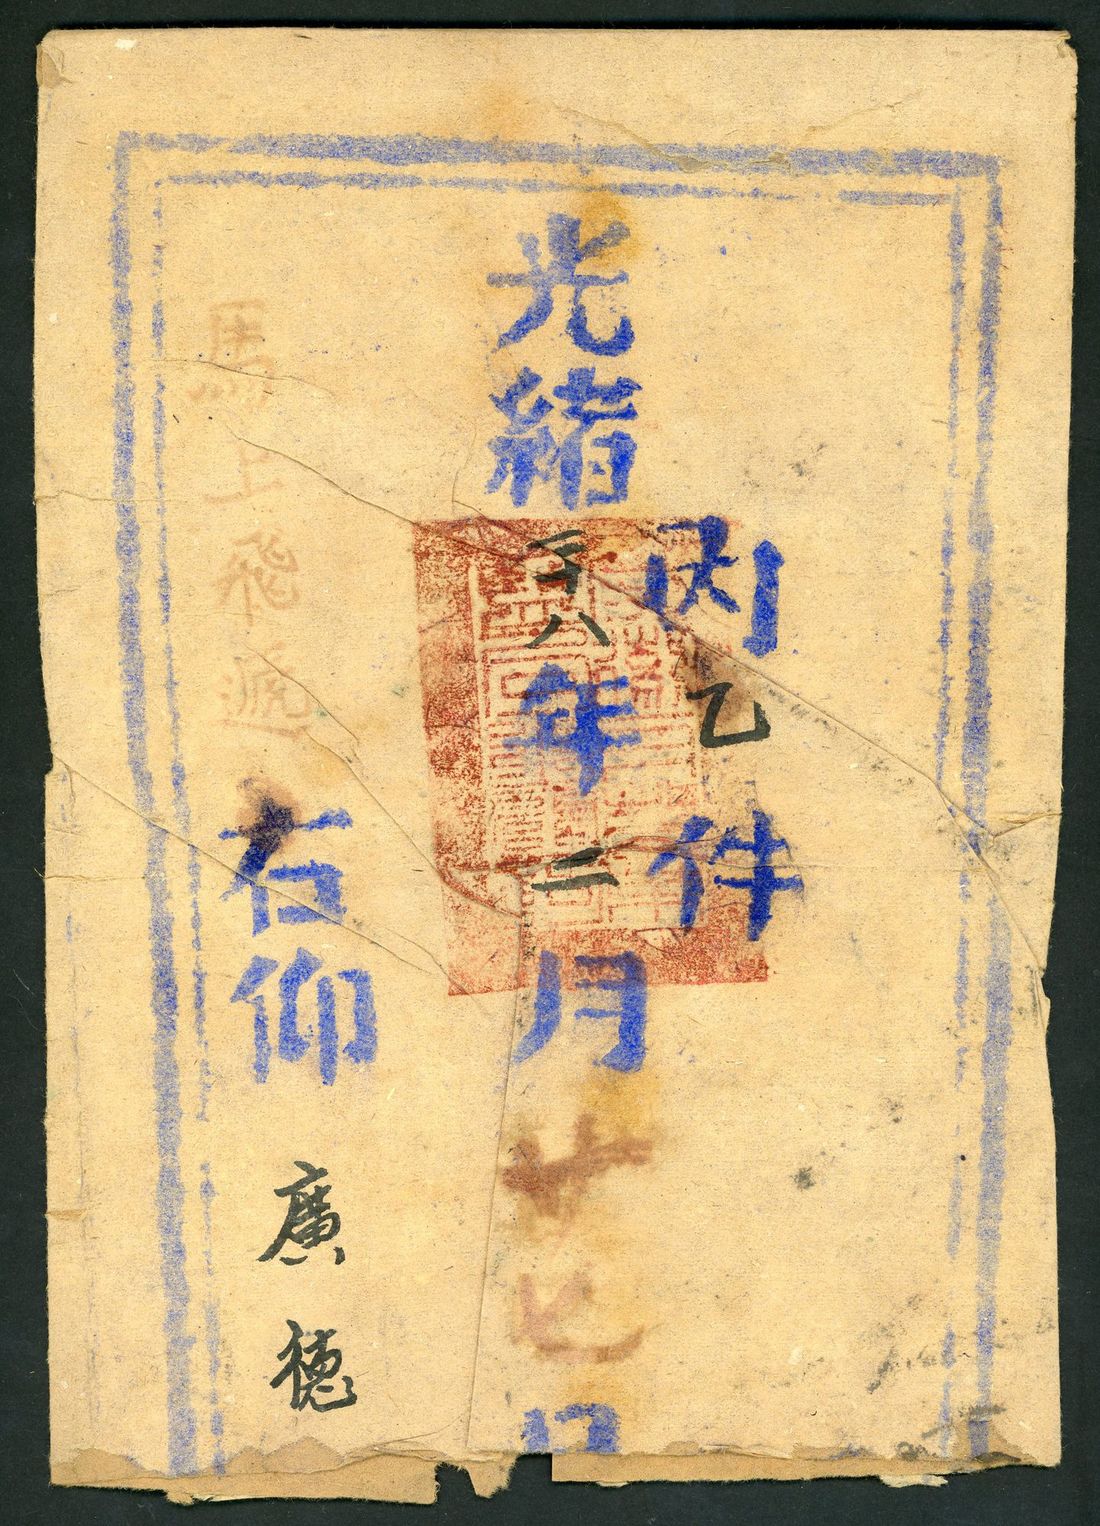 内乙件
光緒二十八年二月廿七日
右仰廣德
馬上飛遞